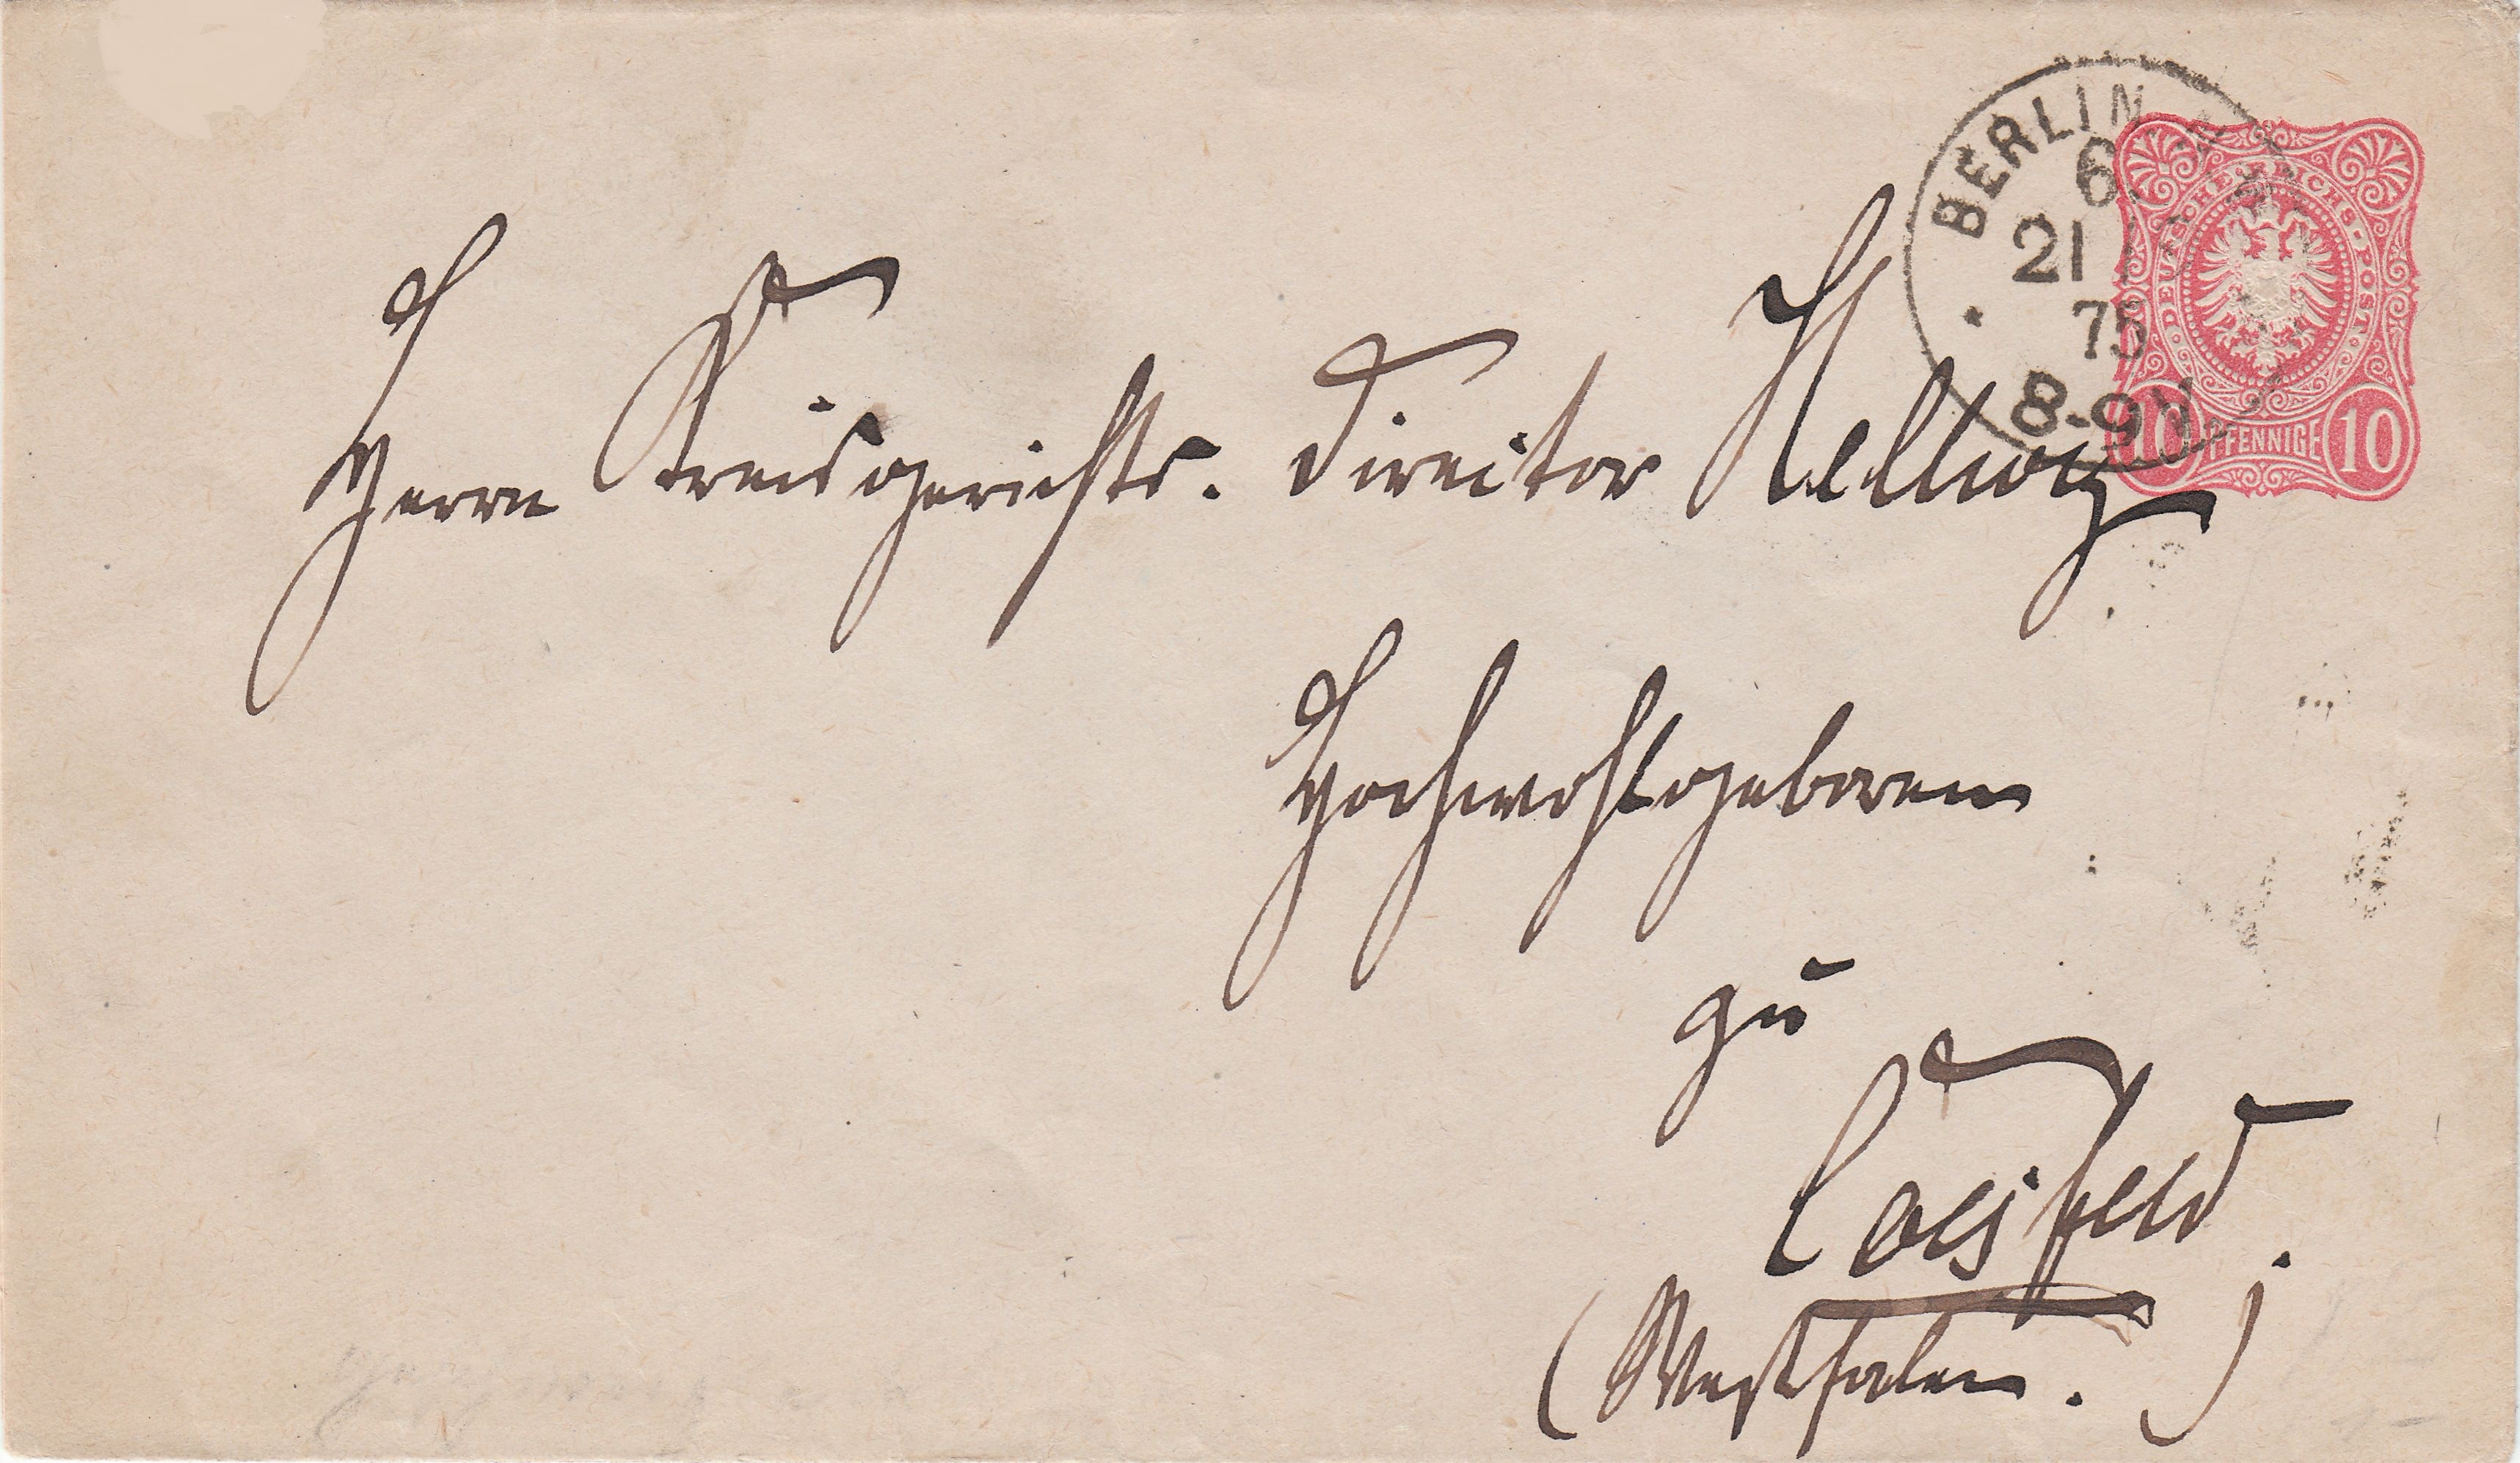 BERLIN. N.
6
21
75
8-9V
DEUTSCHE REICHS-POST.
10 PFENNIGE 10
Herrn Kreisgerichts. Director Hellweg
Hochwohlgeboren
zu
Coesfeld.
(Westfalen.)